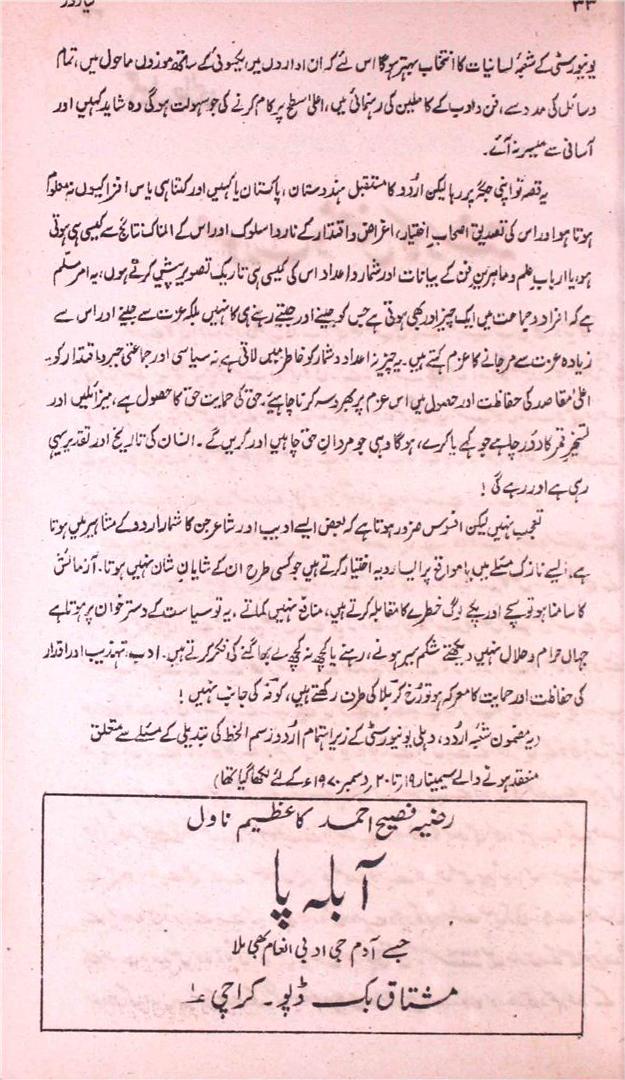 ۳۴
یونیورسٹی کے شعبۂ لسانیات کا انتخاب بہتر ہوگا اس لئے کہ ان اداروں میں یکسوئی کے ساتھ موزوں ماحول میں، تمام
وسائل کی مدد سے، فن و ادب کے کاملین کی رہنمائی میں، اعلیٰ سطح پر کام کرنے کی جو سہولت ہوگی وہ شاید کہیں اور
آسانی سے میسر نہ آئے۔
یہ قصہ تو اپنی جگہ پر رہا لیکن اُردو کا مستقبل ہندوستان، پاکستان یا کہیں اور کتنا ہی یاس افزا کیوں نہ معلوم
ہوتا ہو اور اس کی تصدیق اصحابِ اختیار، اغراض و اقتدار کے ناروا سلوک اور اس کے المناک نتائج سے کیسی ہی ہوتی
ہو، یا اربابِ علم و ماہرینِ فن کے بیانات اور شمار و اعداد اس کی کیسی ہی تاریک تصویر پیش کرتے ہوں، یہ امر مسلّم
ہے کہ افراد و جماعت میں ایک چیز اور بھی ہوتی ہے جس کو جینے اور جیتے رہنے ہی کا نہیں بلکہ عزت سے جینے اور اس سے
زیادہ عزت سے مر جانے کا عزم کہتے ہیں۔ یہ چیز نہ اعداد و شمار کو خاطر میں لاتی ہے نہ سیاسی اور جماعتی جبر و اقتدار کو۔
اعلیٰ مقاصد کی حفاظت اور حصول میں اس عزم پر بھروسہ کرنا چاہیئے۔ حق کی حمایت حق کا حصول ہے، میزائلیں اور
تسخیرِ قمر کا دَور چاہے جو کہے یا کرے، ہوگا وہی جو مردانِ حق چاہیں اور کریں گے۔ انسان کی تاریخ اور تقدیر یہی
رہی ہے اور رہے گی!
تعجب نہیں لیکن افسوس ضرور ہوتا ہے کہ بعض ایسے ادیب اور شاعر جن کا شمار اردو کے مشاہیر میں ہوتا
ہے، ایسے نازک مسئلے میں یا مواقع پر ایسا رویہ اختیار کرتے ہیں جو کسی طرح ان کے شایانِ شان نہیں ہوتا۔ آزمائش
کا سامنا ہو تو سچے اور پکے لوگ خطرے کا مقابلہ کرتے ہیں، منافع نہیں کماتے، یہ تو سیاست کے دسترخوان پر ہوتا ہے
جہاں حرام و حلال نہیں دیکھتے شکم سیر ہونے، رہنے یا کچھ نہ کچھ لے بھاگنے کی فکر کرتے ہیں۔ ادب، تہذیب اور اقدار
کی حفاظت اور حمایت کا معرکہ ہو تو رُخ کربلا کی طرف رکھتے ہیں، کوفہ کی جانب نہیں!
(یہ مضمون شعبۂ اُردو، دہلی یونیورسٹی کے زیرِ اہتمام اُردو رسم الخط کی تبدیلی کے مسئلے سے متعلق
منعقد ہونے والے سیمینار ۱۹ تا ۲۰ دسمبر ۱۹۷۰ء کے لئے لکھا گیا تھا)
رضیہ فصیح احمد کا عظیم ناول
آبلہ پا
جسے آدم جی ادبی انعام بھی ملا
مشتاق بک ڈپو۔ کراچی ۱